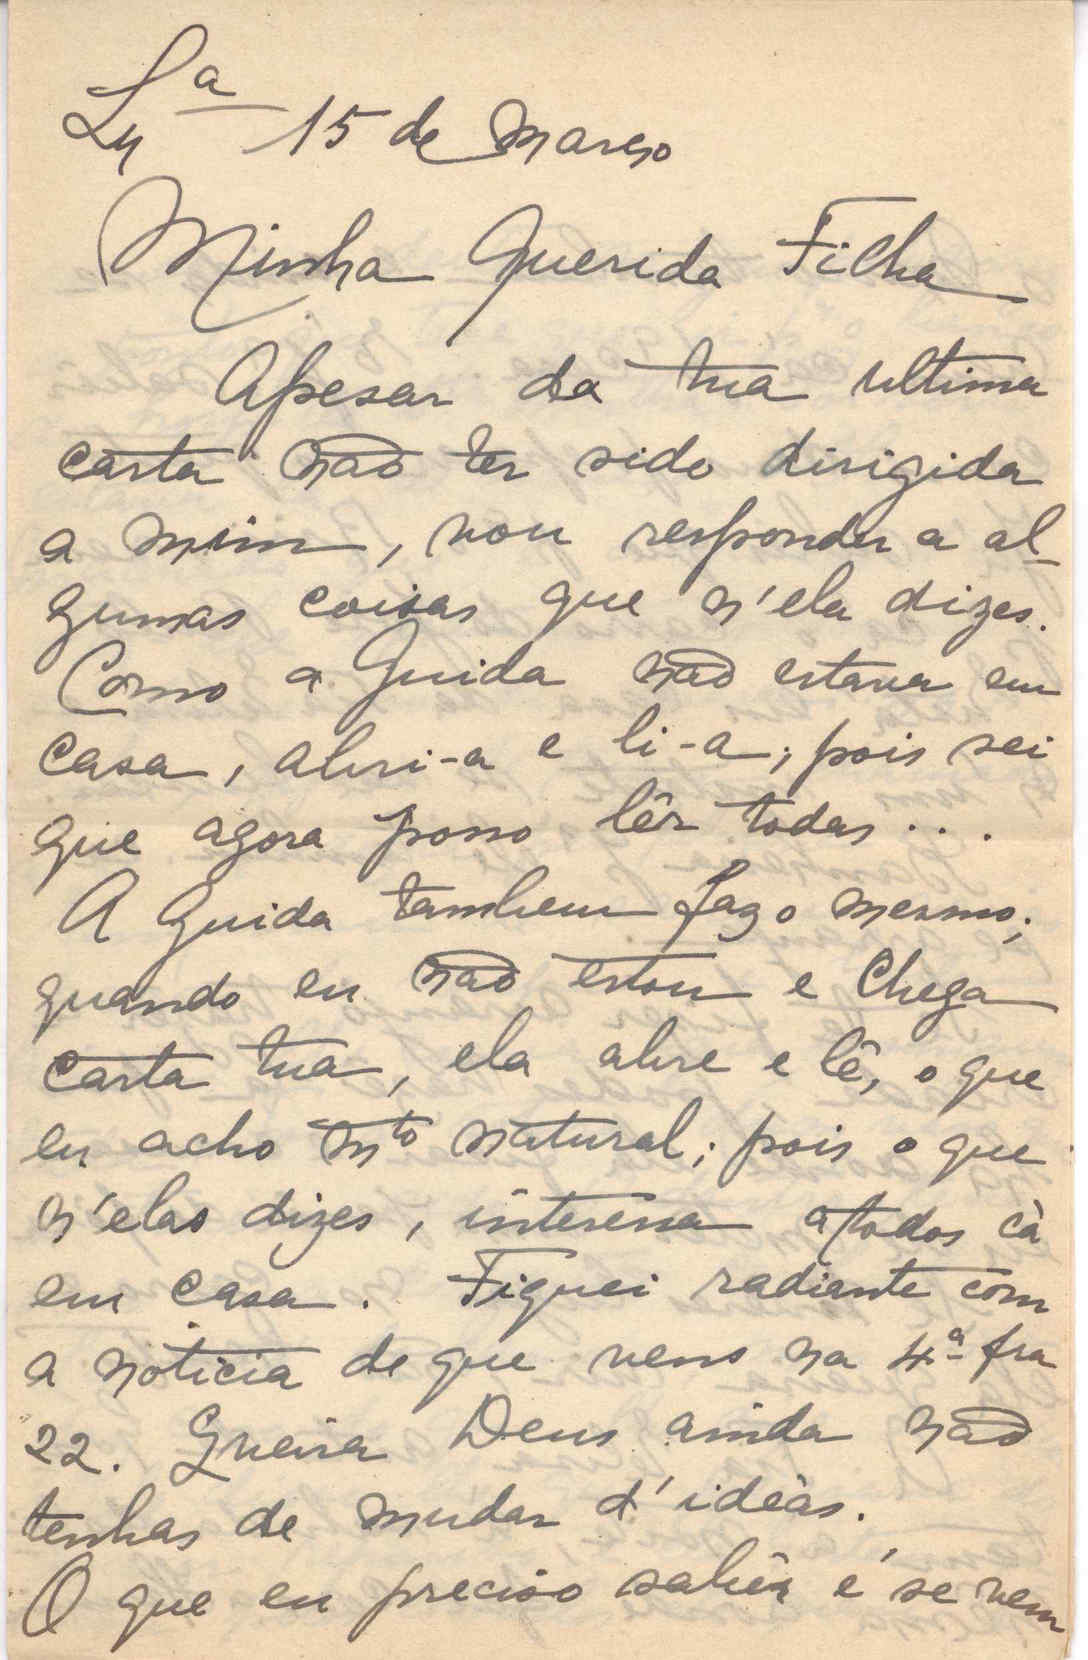 Lxª 15 de Março
Minha Querida Filha
Apesar da tua ultima
carta não ter sido dirigida
a mim, vou responder a al-
gumas coisas que n'ela dizes.
Como a Guida não estava em
casa, abri-a e li-a; pois sei
que agora posso lêr todas...
A Guida tambem faz o mesmo;
quando eu não estou e chega
carta tua, ela abre e lê, o que
eu acho mto natural; pois o que
n'elas dizes, interessa a todos cà
em casa. Fiquei radiante com
a noticia de que vens na 4ª fra
22. Queira Deus ainda não
tenhas de mudar d'idèas.
O que eu preciso sabêr é se vem